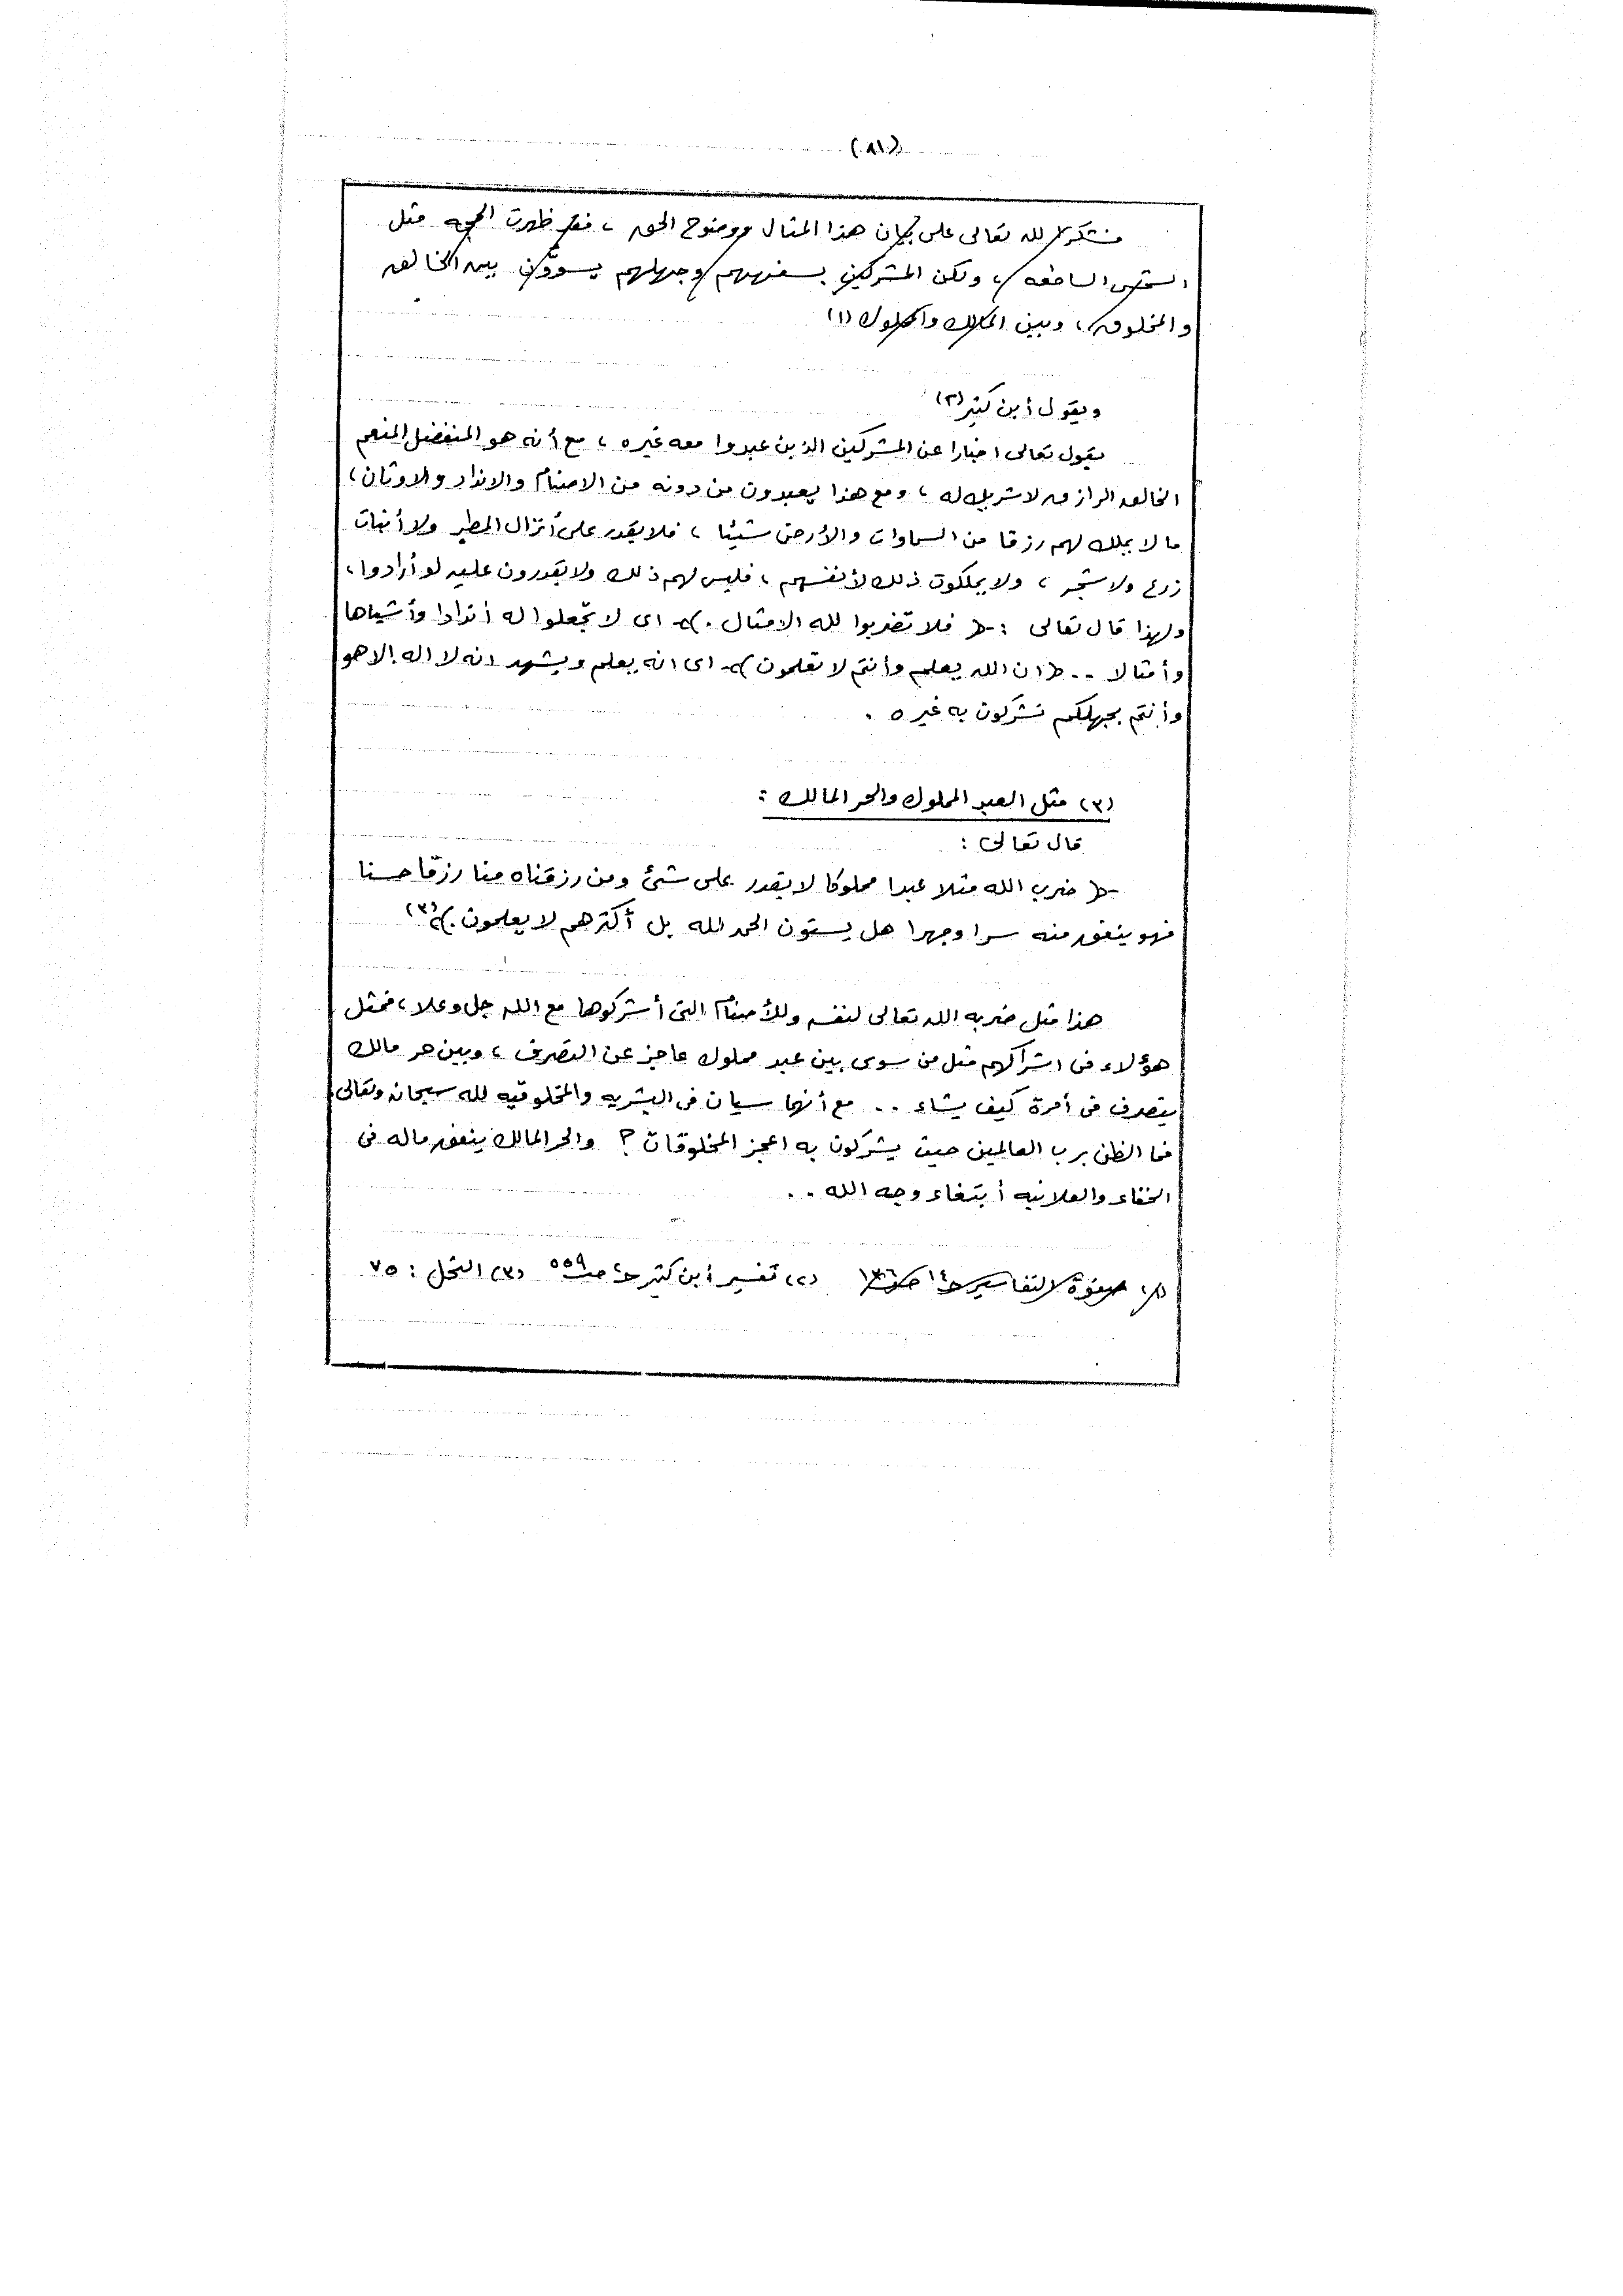 (٨١)
فشكرا لله تعالى على بيان هذا المثال ووضوح الحق ، فقد ظهرت الحجه مثل
الشمس الساطعه ، ولكن المشركين بسفههم وجهلهم يسوون بين الخالق
والمخلوق ، وبين المالك والمملوك (١)
ويقول أبن كثير (٢)
يقول تعالى اخبارا عن المشركين الذين عبدوا معه غيره ، مع أنه هو المتفضل المنعم
الخالق الرازق لا شريك له ، ومع هذا يعبدون من دونه من الاصنام والانداد والاوثان ،
ما لا يملك لهم رزقا من السماوات والأرض شيئا ، فلا يقدر على أنزال المطر ولا أنبات
زرع ولا شجر ، ولا يملكون ذلك لأنفسهم ، فليس لهم ذلك ولا يقدرون عليه لو أرادوا ،
ولهذا قال تعالى : ﴿ فلا تضربوا لله الامثال . ﴾ اى لا تجعلوا له أندادا وأشباها
وأمثالا .. ﴿ ان الله يعلم وأنتم لا تعلمون ﴾ اى انه يعلم ويشهد انه لا اله الا هو
وأنتم بجهلكم تشركون به غيره .
(٣) مثل العبد المملوك والحر المالك :
قال تعالى :
﴿ ضرب الله مثلا عبدا مملوكا لا يقدر على شئ ومن رزقناه منا رزقا حسنا
فهو ينفق منه سرا وجهرا هل يستون الحمد لله بل أكثرهم لا يعلمون . ﴾ (٣)
هذا مثل ضربه الله تعالى لنفسه وللأصنام التى أشركوها مع الله جل وعلا ، فمثل
هؤلاء فى اشراكهم مثل من سوى بين عبد مملوك عاجز عن التصرف ، وبين حر مالك
يتصرف فى أمرة كيف يشاء .. مع أنهما سيان فى البشريه والمخلوقيه لله سبحانه وتعالى
فما الظن برب العالمين حيث يشركون به اعجز المخلوقات ؟ والحر المالك ينفق ماله فى
الخفاء والعلانيه أبتغاء وجه الله ..
(١) صفوة التفاسير ح١٤ ص١٣٦ (٢) تفسير أبن كثير ح٢ ص٥٥٩ (٣) النحل : ٧٥